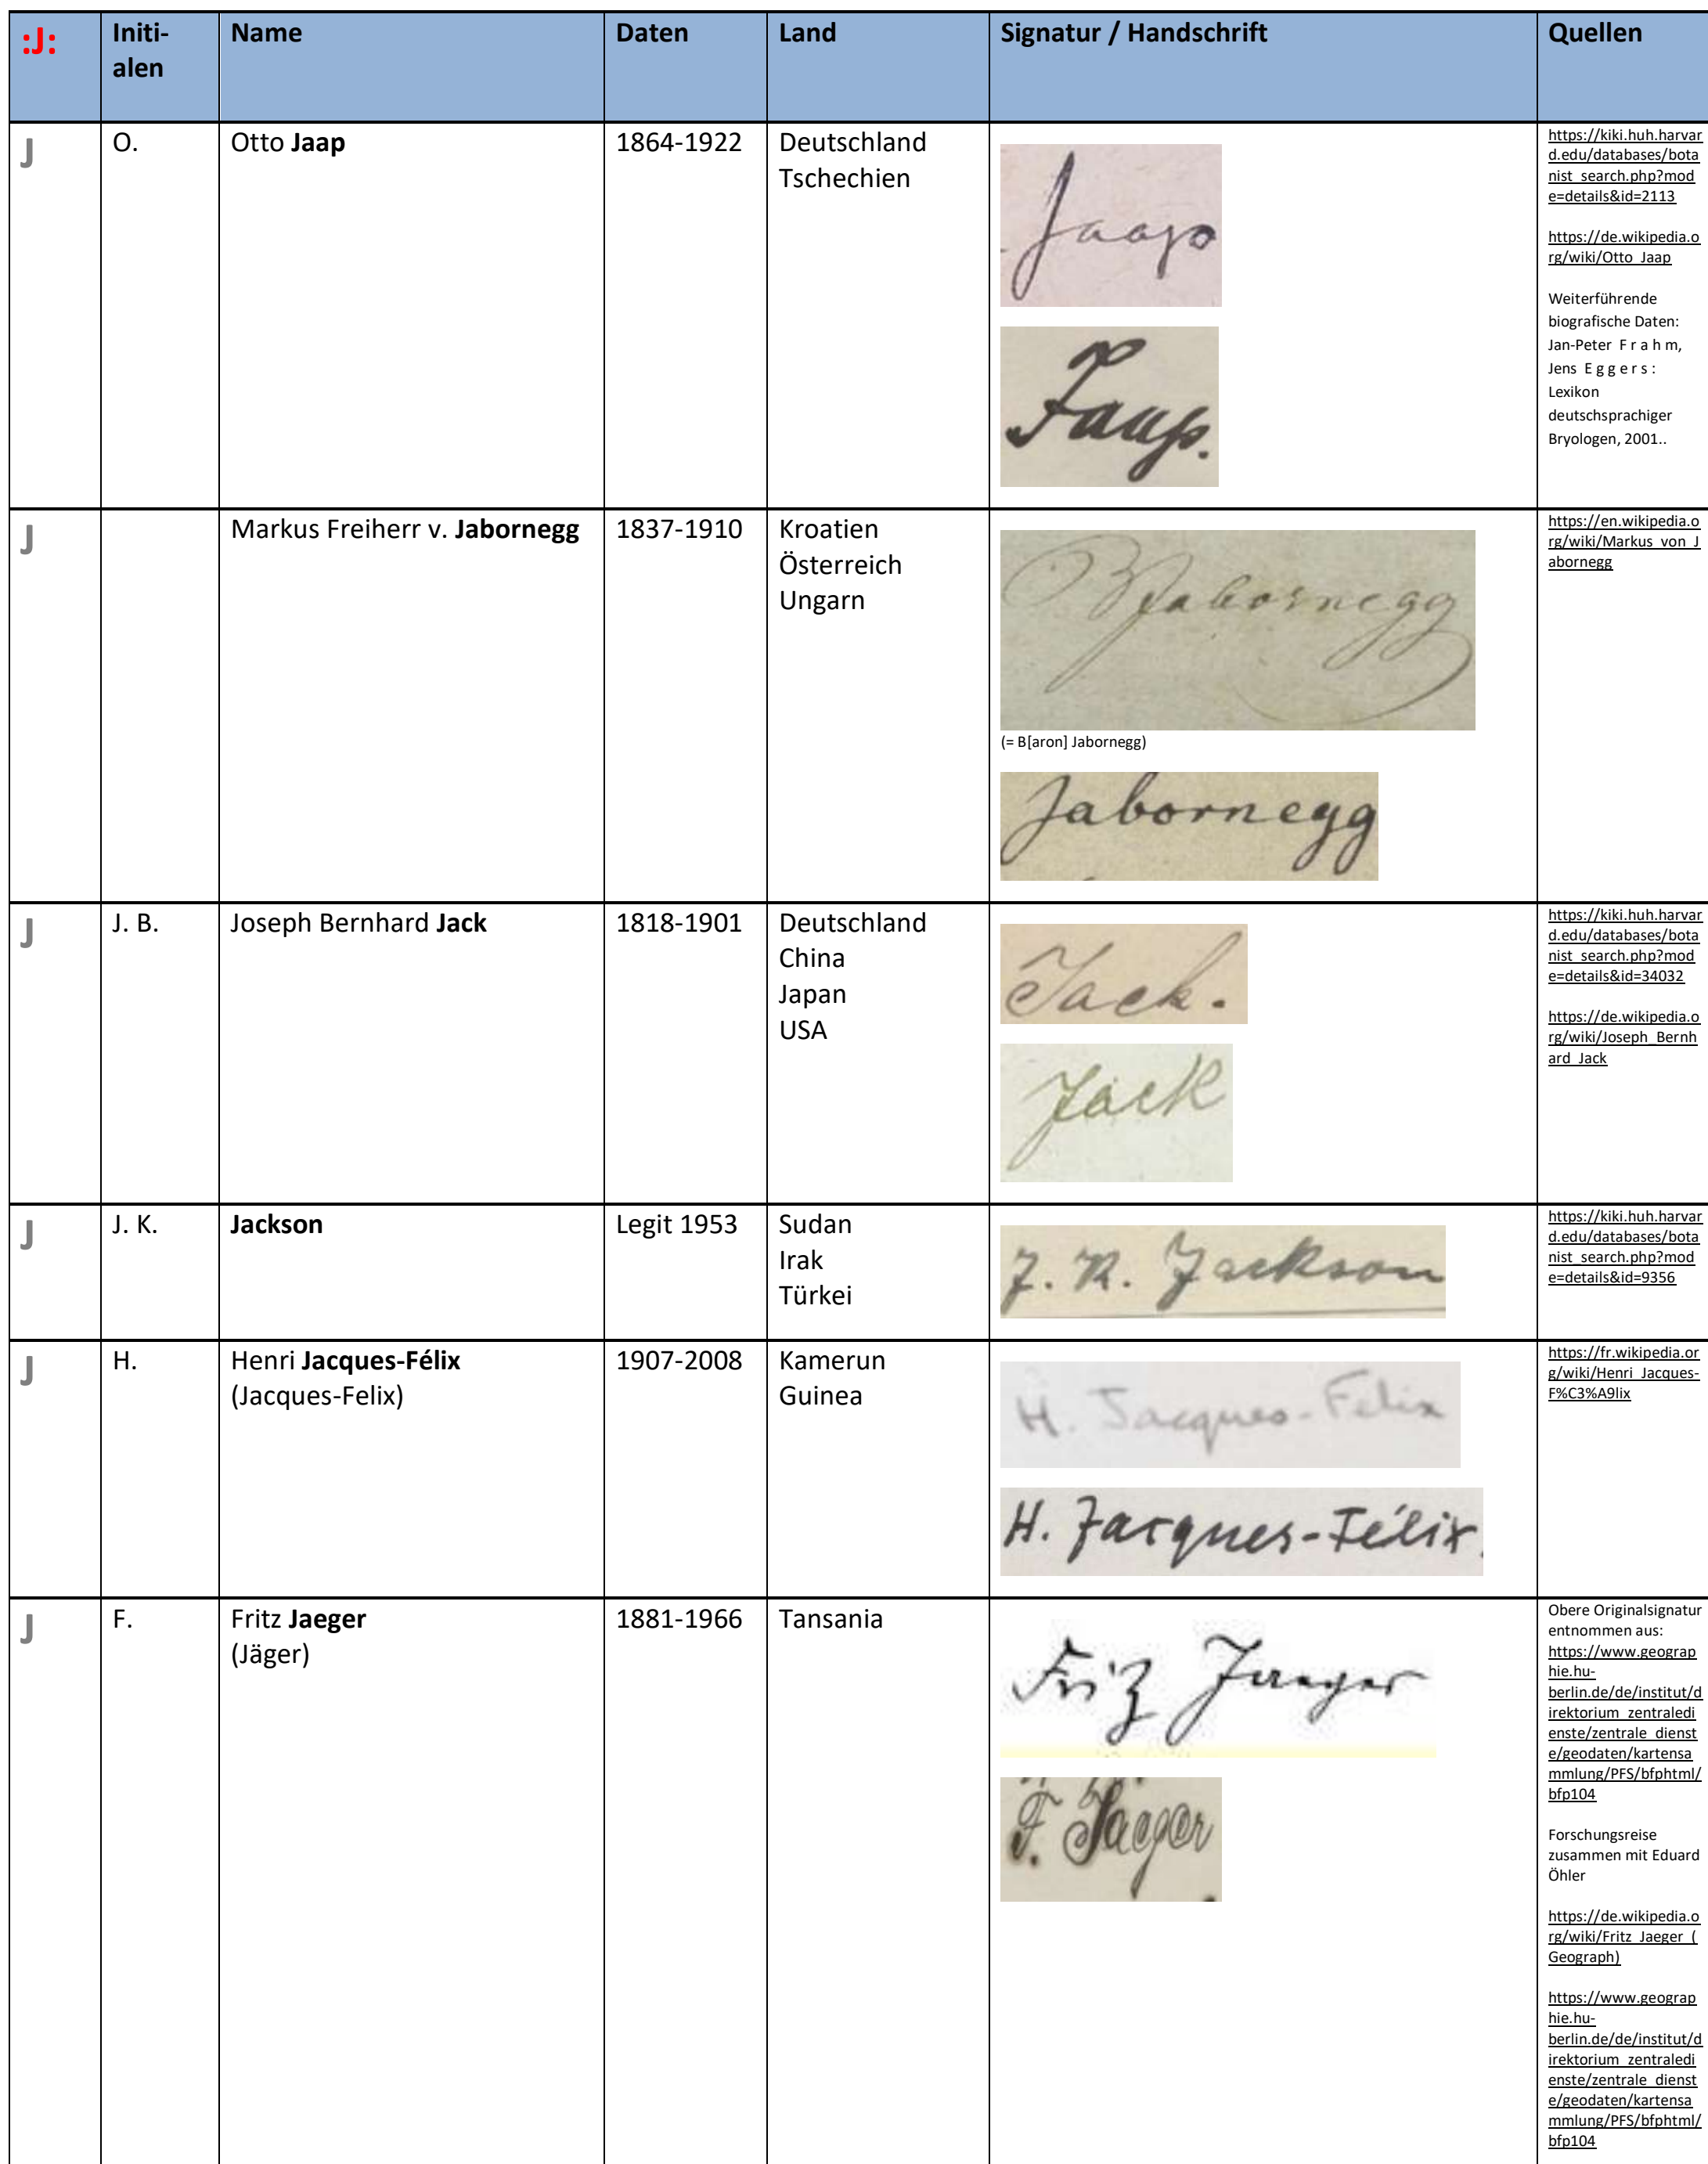 :J:
Initi-
alen
Name
Daten
Land
Signatur / Handschrift
Quellen
J
O.
Otto Jaap
1864-1922
Deutschland
Tschechien
Jaap
Jaap.
https://kiki.huh.harvar
d.edu/databases/bota
nist_search.php?mod
e=details&id=2113
https://de.wikipedia.o
rg/wiki/Otto_Jaap
Weiterführende
biografische Daten:
Jan-Peter F r a h m,
Jens E g g e r s :
Lexikon
deutschsprachiger
Bryologen, 2001..
J
Markus Freiherr v. Jabornegg
1837-1910
Kroatien
Österreich
Ungarn
BJabornegg
(= B[aron] Jabornegg)
Jabornegg
https://en.wikipedia.o
rg/wiki/Markus_von_J
abornegg
J
J. B.
Joseph Bernhard Jack
1818-1901
Deutschland
China
Japan
USA
Jack.
Jack
https://kiki.huh.harvar
d.edu/databases/bota
nist_search.php?mod
e=details&id=34032
https://de.wikipedia.o
rg/wiki/Joseph_Bernh
ard_Jack
J
J. K.
Jackson
Legit 1953
Sudan
Irak
Türkei
J. K. Jackson
https://kiki.huh.harvar
d.edu/databases/bota
nist_search.php?mod
e=details&id=9356
J
H.
Henri Jacques-Félix
(Jacques-Felix)
1907-2008
Kamerun
Guinea
H. Jacques-Felix
H. Jacques-Félix.
https://fr.wikipedia.or
g/wiki/Henri_Jacques-
F%C3%A9lix
J
F.
Fritz Jaeger
(Jäger)
1881-1966
Tansania
Friz Jaeger
F. Jaeger
Obere Originalsignatur
entnommen aus:
https://www.geograp
hie.hu-
berlin.de/de/institut/d
irektorium_zentraledi
enste/zentrale_dienst
e/geodaten/kartensa
mmlung/PFS/bfphtml/
bfp104
Forschungsreise
zusammen mit Eduard
Öhler
https://de.wikipedia.o
rg/wiki/Fritz_Jaeger_(
Geograph)
https://www.geograp
hie.hu-
berlin.de/de/institut/d
irektorium_zentraledi
enste/zentrale_dienst
e/geodaten/kartensa
mmlung/PFS/bfphtml/
bfp104